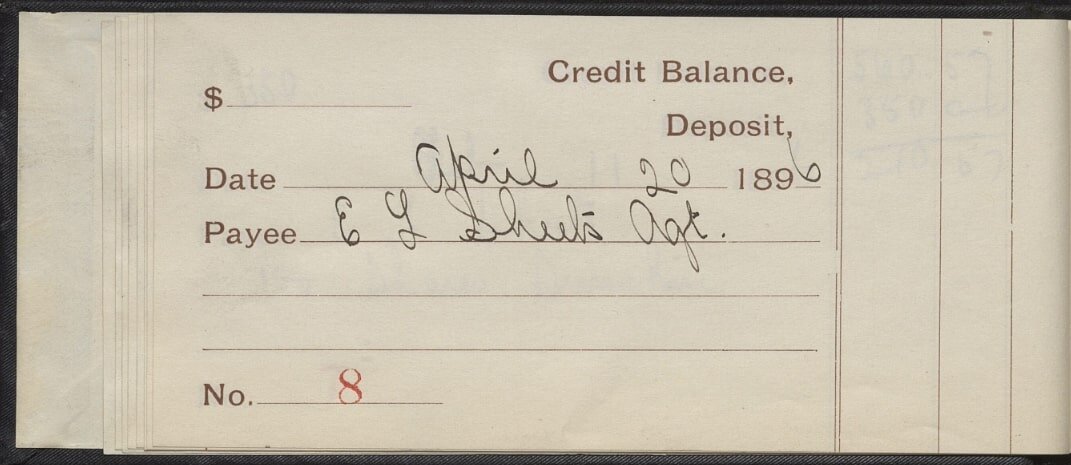 Credit Balance,
$
Deposit,
Date April 20 1896
Payee E L Sheets Agt.
No. 8